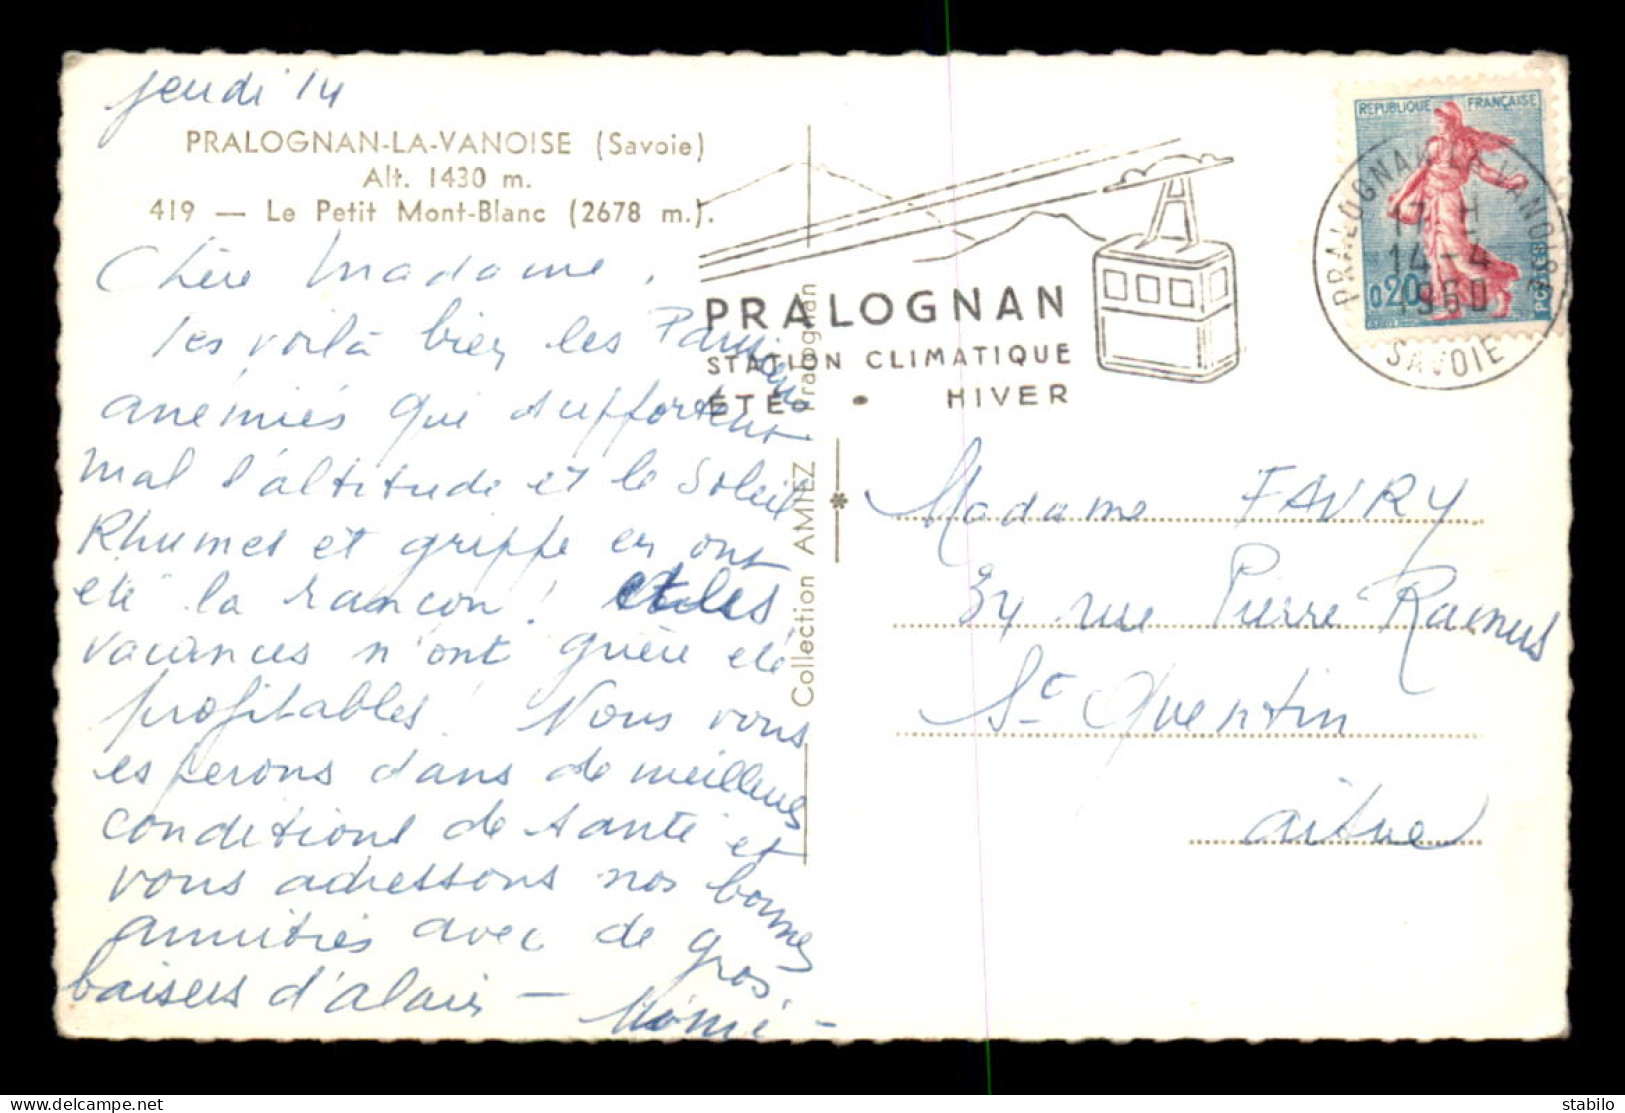 jeudi 14
PRALOGNAN-LA-VANOISE (Savoie)
Alt. 1430 m.
419 — Le Petit Mont-Blanc (2678 m.).
Chère Madame,
les voilà bien les Parisiens
anémiés qui supportent
mal l'altitude et le soleil
Rhumes et grippe en ont
été la rançon ! et les
vacances n'ont guère été
profitables ! Nous vous
espérons dans de meilleures
conditions de santé et
vous adressons nos bonnes
amitiés avec de gros
baisers d'alain —
Collection AMIEZ, Pralognan
PRALOGNAN
STATION CLIMATIQUE
ÉTÉ • HIVER
REPUBLIQUE FRANÇAISE
0,20
POSTES
PRALOGNAN LA VANOISE
17 H
14 - 4
1960
SAVOIE
Madame FAVRY
34 rue Pierre Ramus
St Quentin
aisne
delcampe.net
stabilo